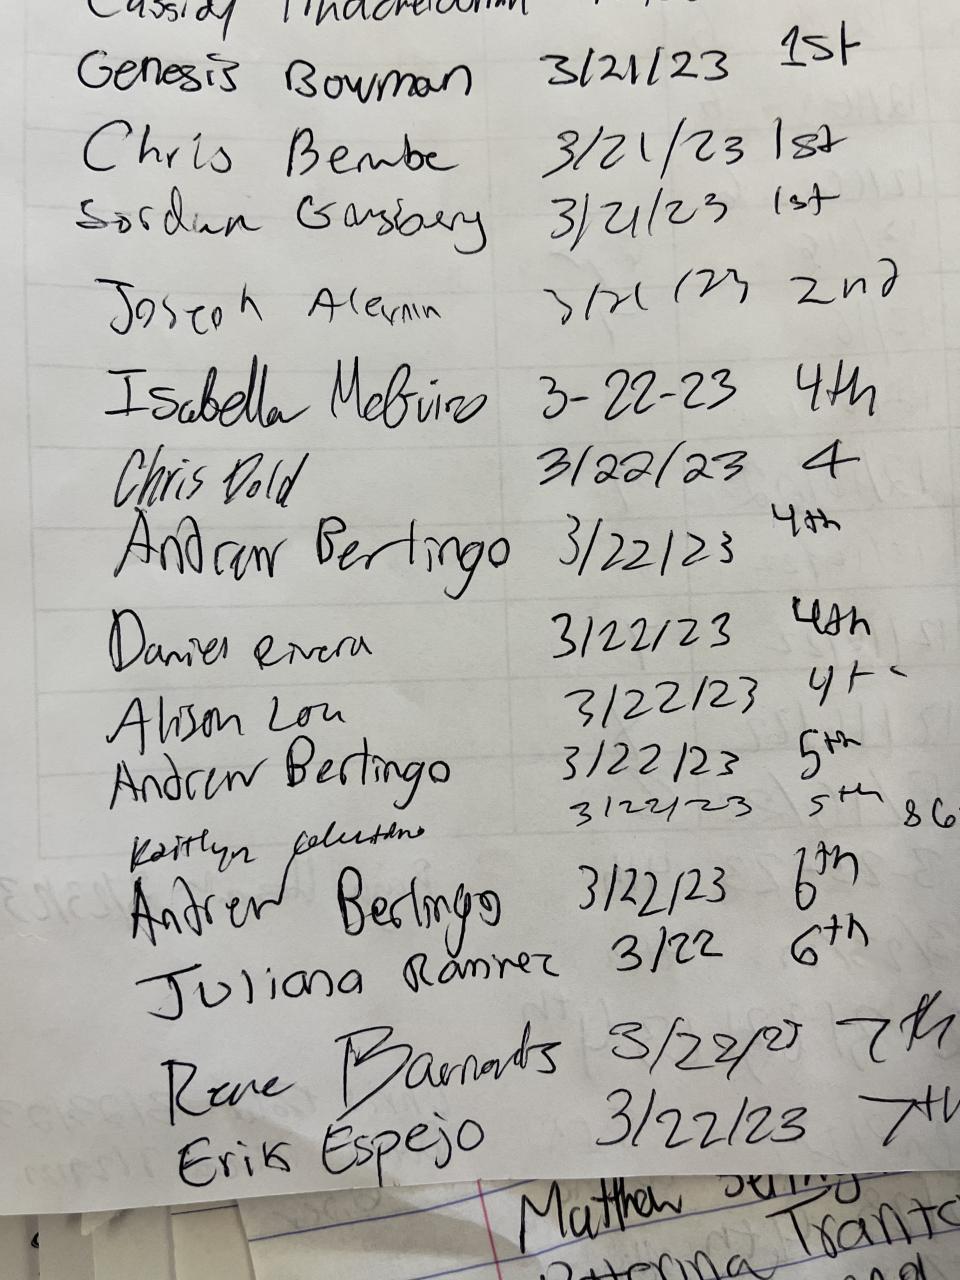 Cassidy
Genesis Bowman 3/21/23 1st
Chris Bembe 3/21/23 1st
3/21/23 1st
Joseph 3/21/23 2nd
Isabella McGuire 3-22-23 4th
Chris Dold 3/22/23 4
Andrew Bertingo 3/22/23 4th
Daniel Rivera 3/22/23 4th
Alison Lou 3/22/23
Andrew Bertingo 3/22/23 5th
Kaitlyn 3/22/23 5th 86
Andrew Bertingo 3/22/23 6th
Juliana Ramirez 3/22 6th
Rene 3/22/23 7th
Erik Espejo 3/22/23 7th
Matthew